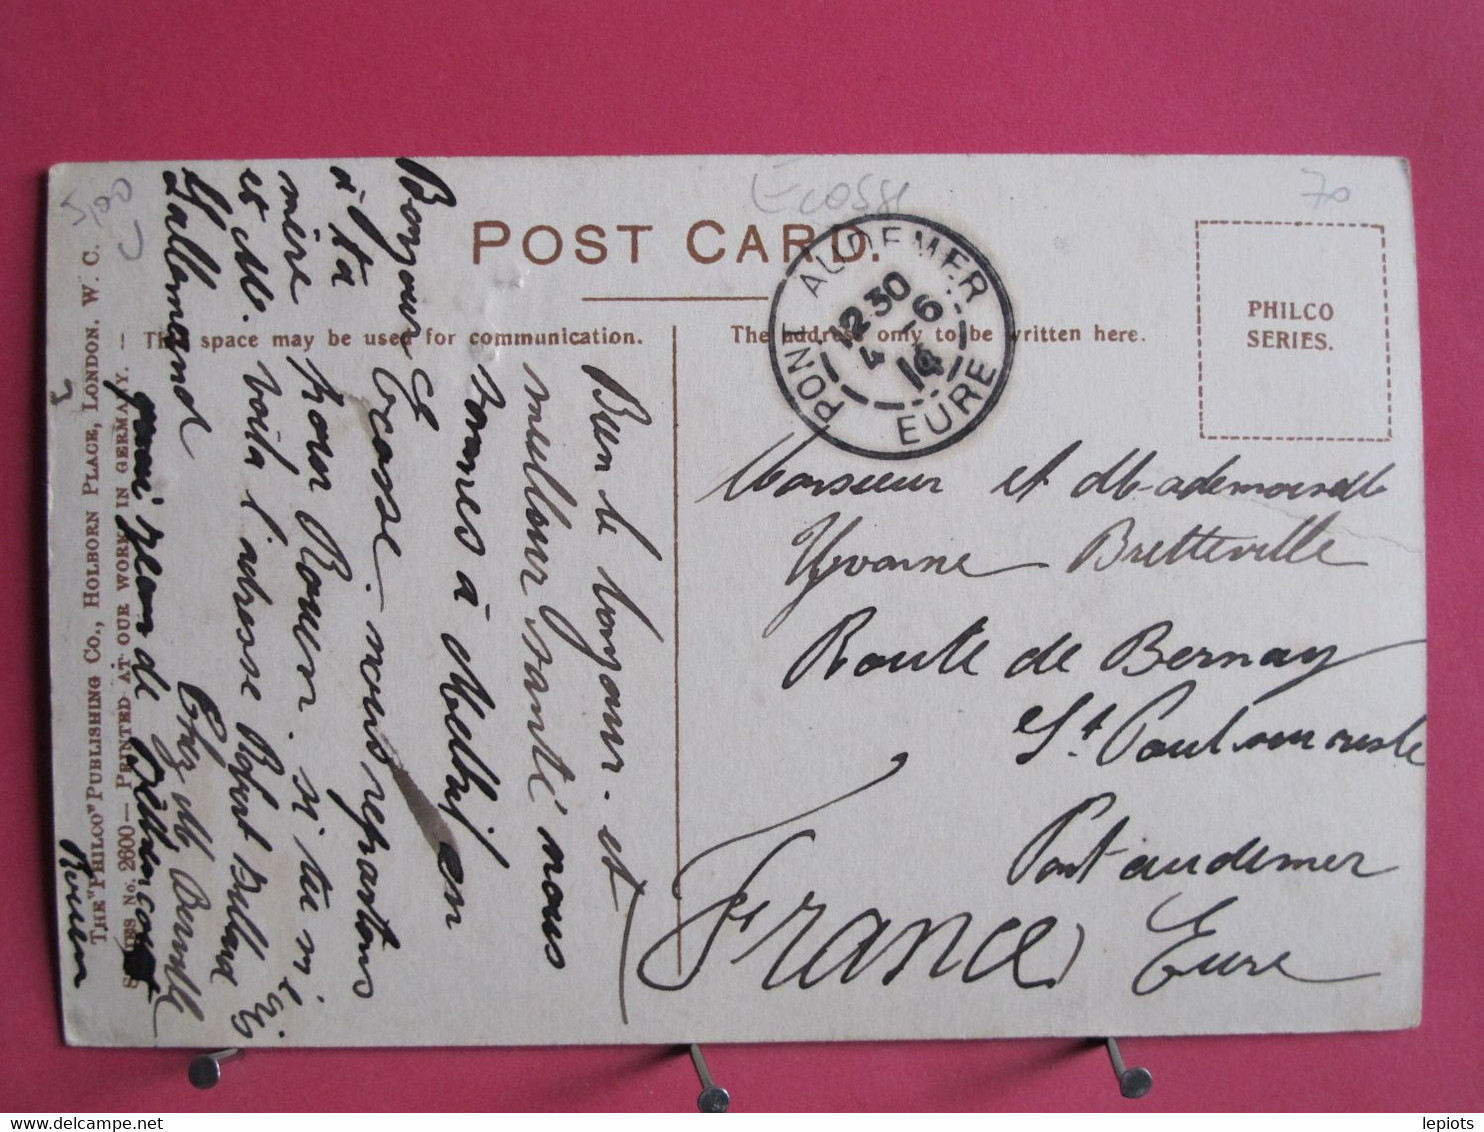 Ecosse
70
5,00
POST CARD.
The space may be used for communication.
The address only to be written here.
PHILCO
SERIES.
PONT AUDEMER
12 30
6
4 14
EURE
Monsieur et Mademoiselle
Yvonne Bretteville
Route de Bernay
St Paul sur risle
Pont audemer
Eure
France
Bien le bonjour. et
meilleur santé nous
sommes à en
Ecosse. nous repartons
pour Rouen. si tu m'écris
voila l'adresse Robert
Chez M,
quai de
Rouen
Bonjour
à ta
mère
et M.
Lallemand
THE "PHILCO" PUBLISHING CO., HOLBORN PLACE, LONDON. W. C.
SERIES No. 2600 — PRINTED AT OUR WORK IN GERMANY. —
lepiots